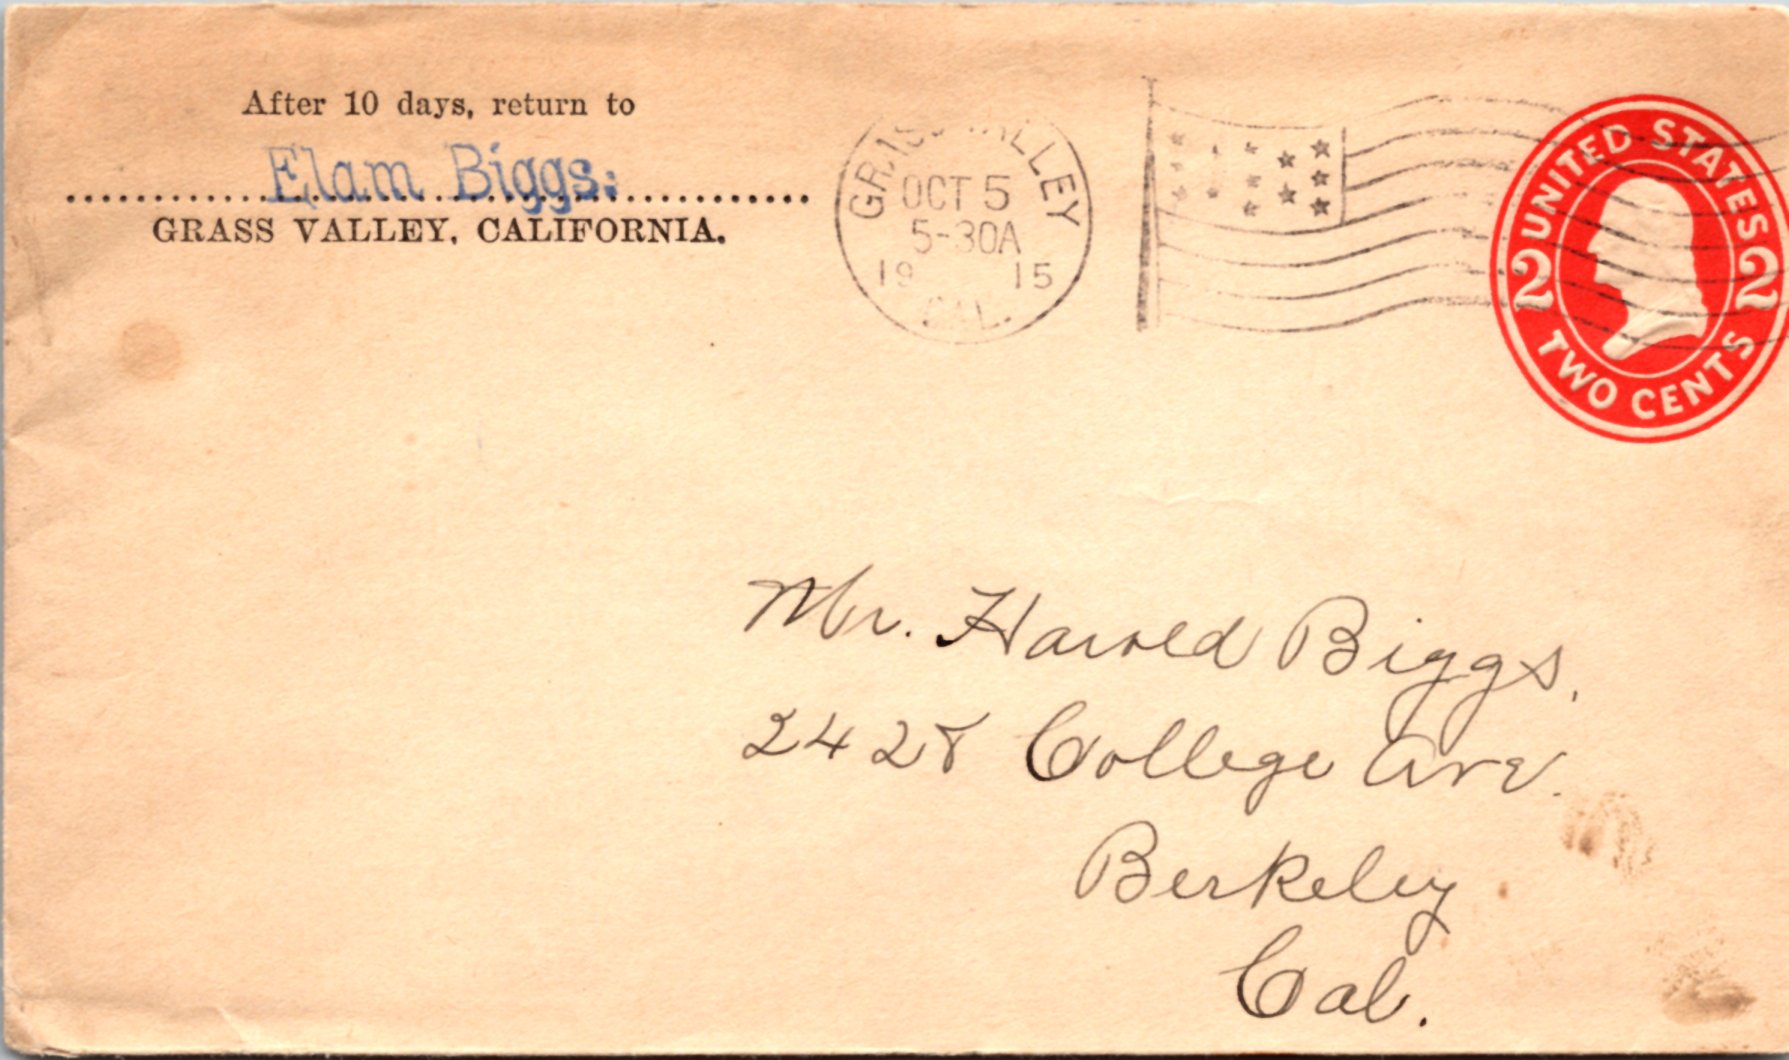 After 10 days, return to
Elam Biggs.
GRASS VALLEY, CALIFORNIA.
GRASS VALLEY
OCT 5
5-30A
19 15
CAL.
UNITED STATES
2 2
TWO CENTS
Mr. Harold Biggs,
2428 College Ave.
Berkeley
Cal.